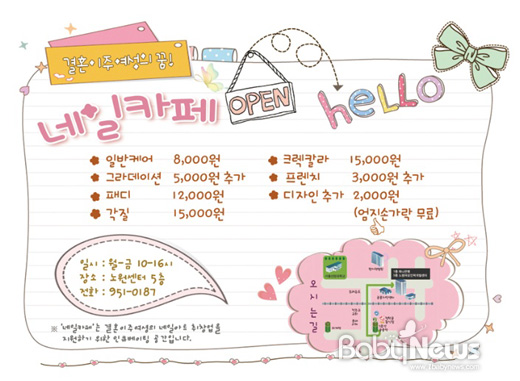 결혼이주여성의 꿈!
네일카페
OPEN
hello
일반케어 8,000원
그라데이션 5,000원 추가
패디 12,000원
각질 15,000원
크렉칼라 15,000원
프렌치 3,000원 추가
디자인 추가 2,000원
(엄지손가락 무료)
일시 : 월~금 10-16시
장소 : 노원센터 5층
전화 : 951-0187
오시는길
※ '네일카페'는 결혼이주여성의 네일아트 취창업을
지원하기 위한 인큐베이팅 공간입니다.
BabyNews